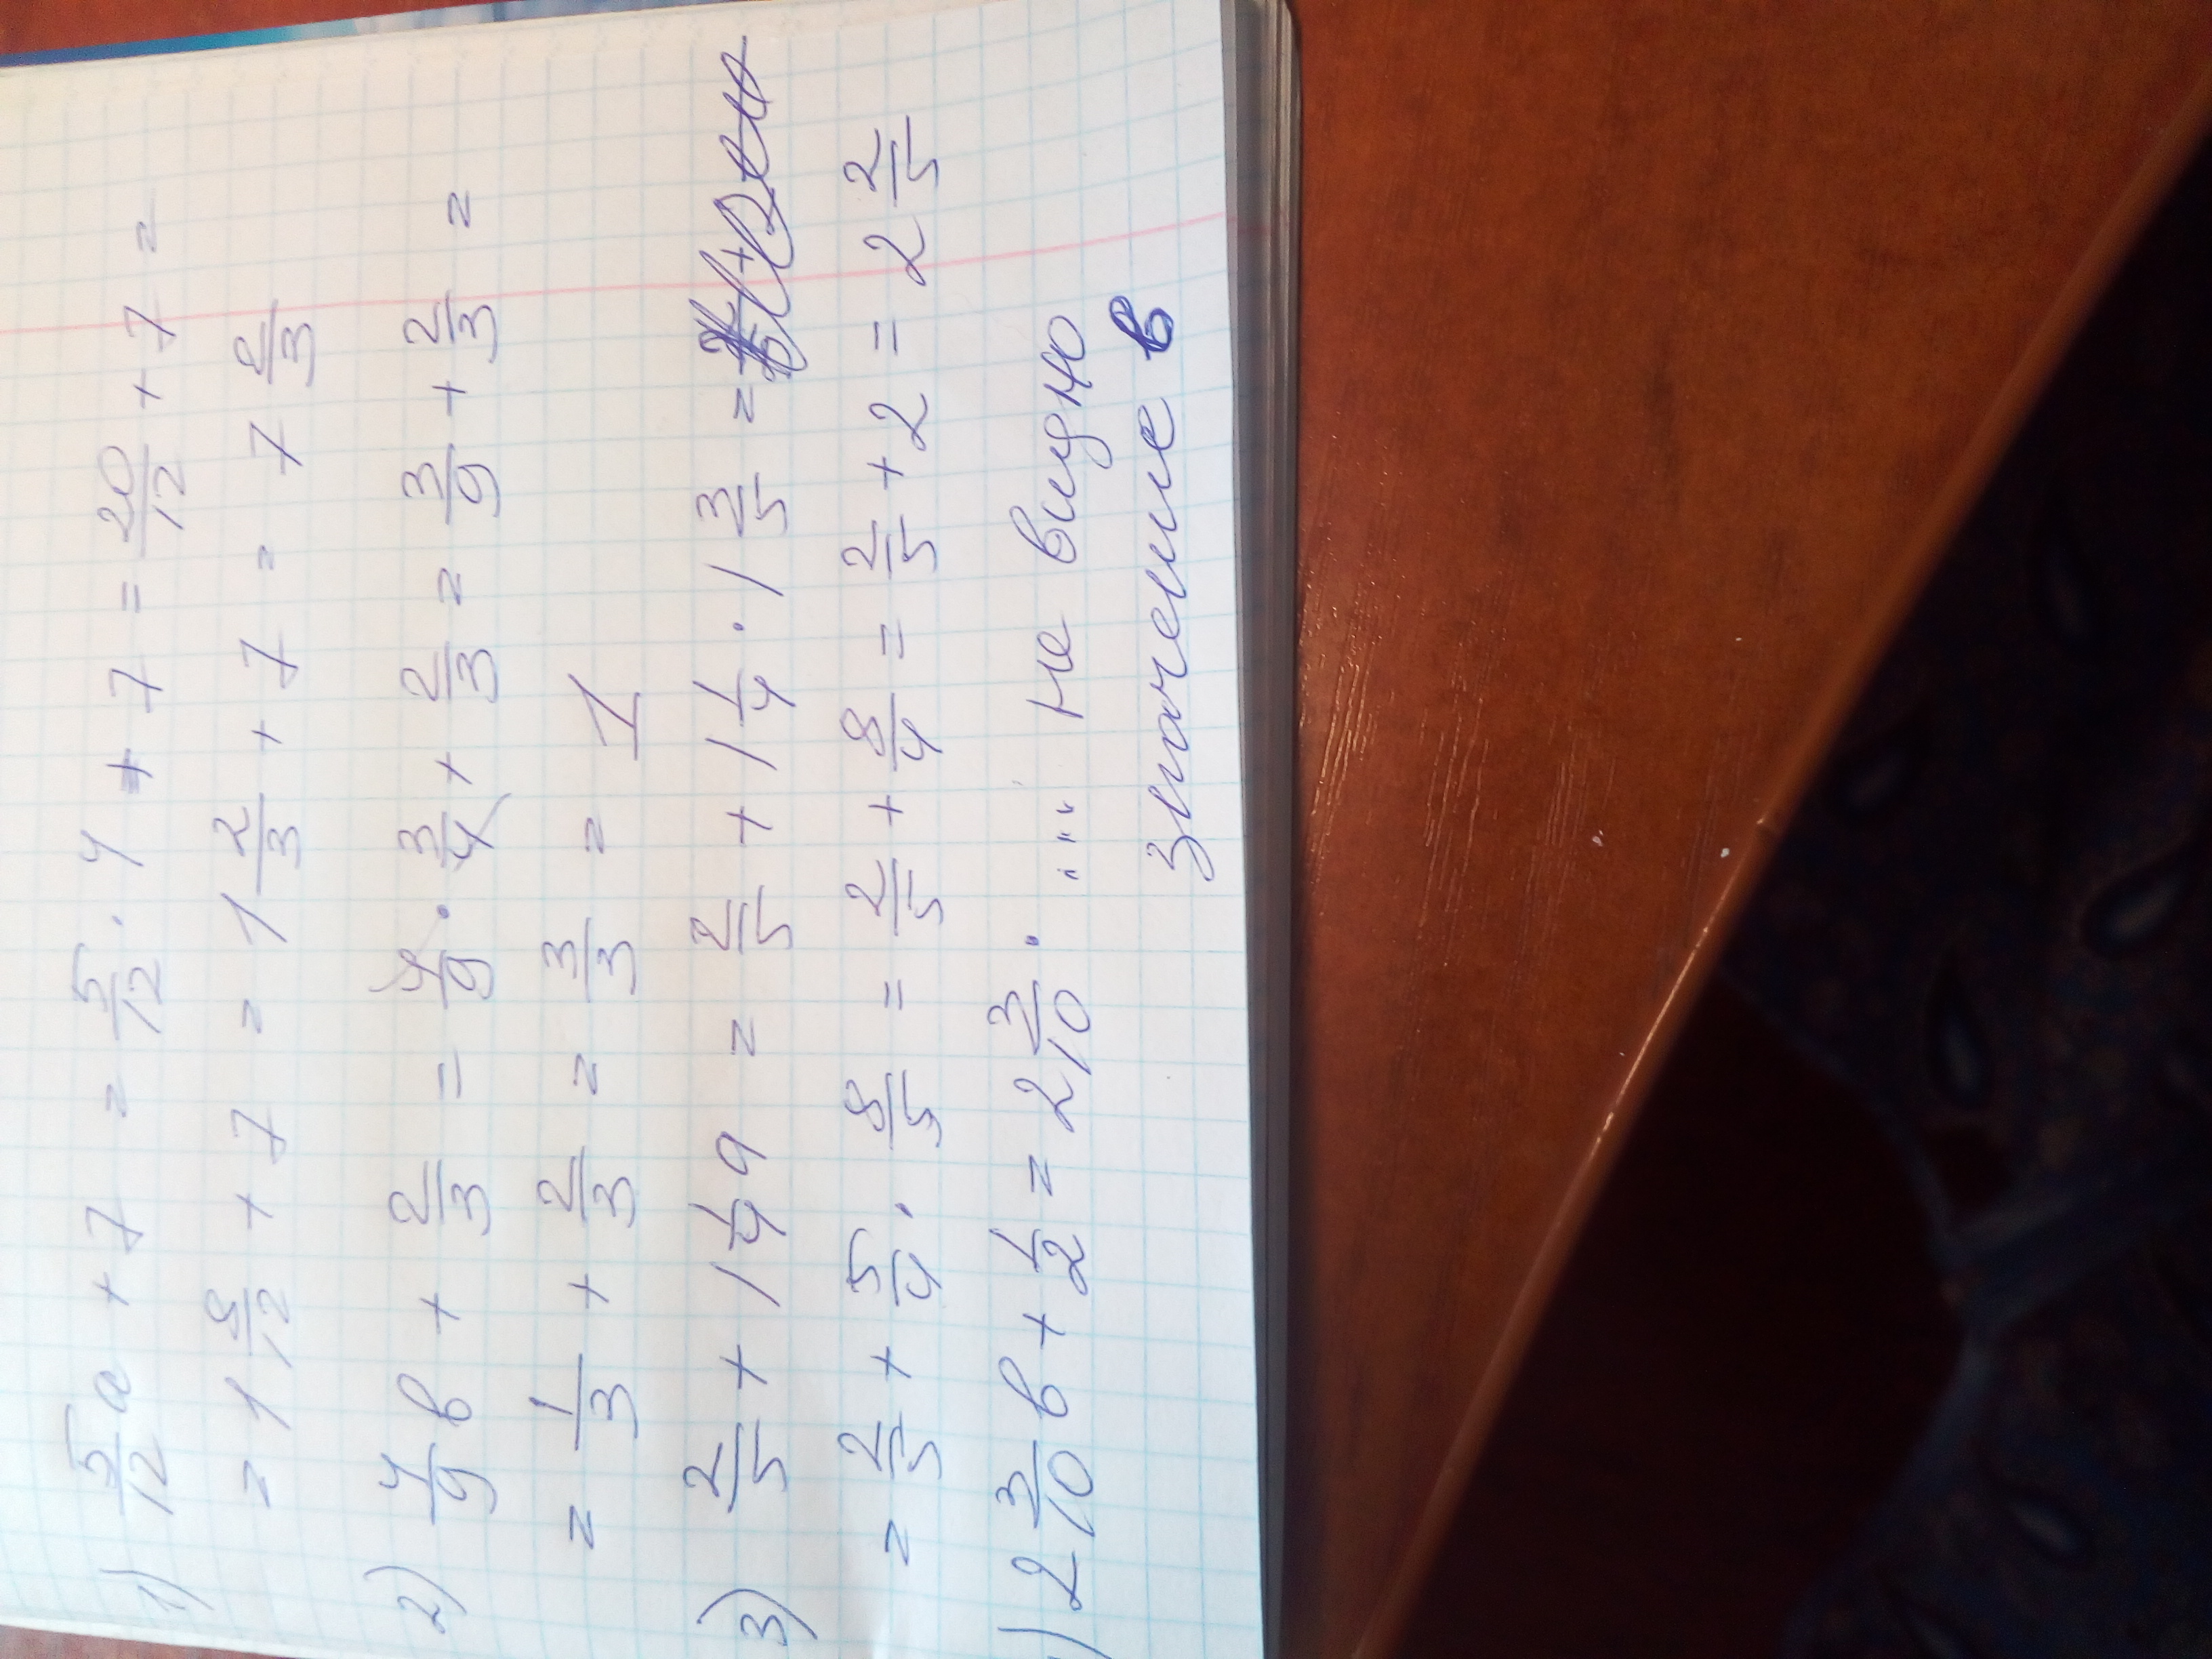 1) 5/12 a + 7 = 5/12 · 4 + 7 = 20/12 + 7 =
= 1 8/12 + 7 = 1 2/3 + 7 = 7 2/3
2) 4/9 в + 2/3 = 4/9 · 3/4 + 2/3 = 3/9 + 2/3 =
= 1/3 + 2/3 = 3/3 = 1
3) 2/5 + 1 1/4 a = 2/5 + 1 1/4 · 1 3/5 =
= 2/5 + 5/4 · 8/5 = 2/5 + 8/4 = 2/5 + 2 = 2 2/5
) 2 3/10 в + 1/2 = 2 3/10 · .... не видно
значение в